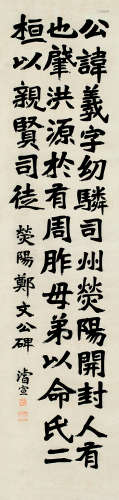 公諱羲字幼驎司州熒陽開封人有
也肇洪源於有周胙母弟以命氏二
桓以親賢司徒
熒陽鄭文公碑 濬宣